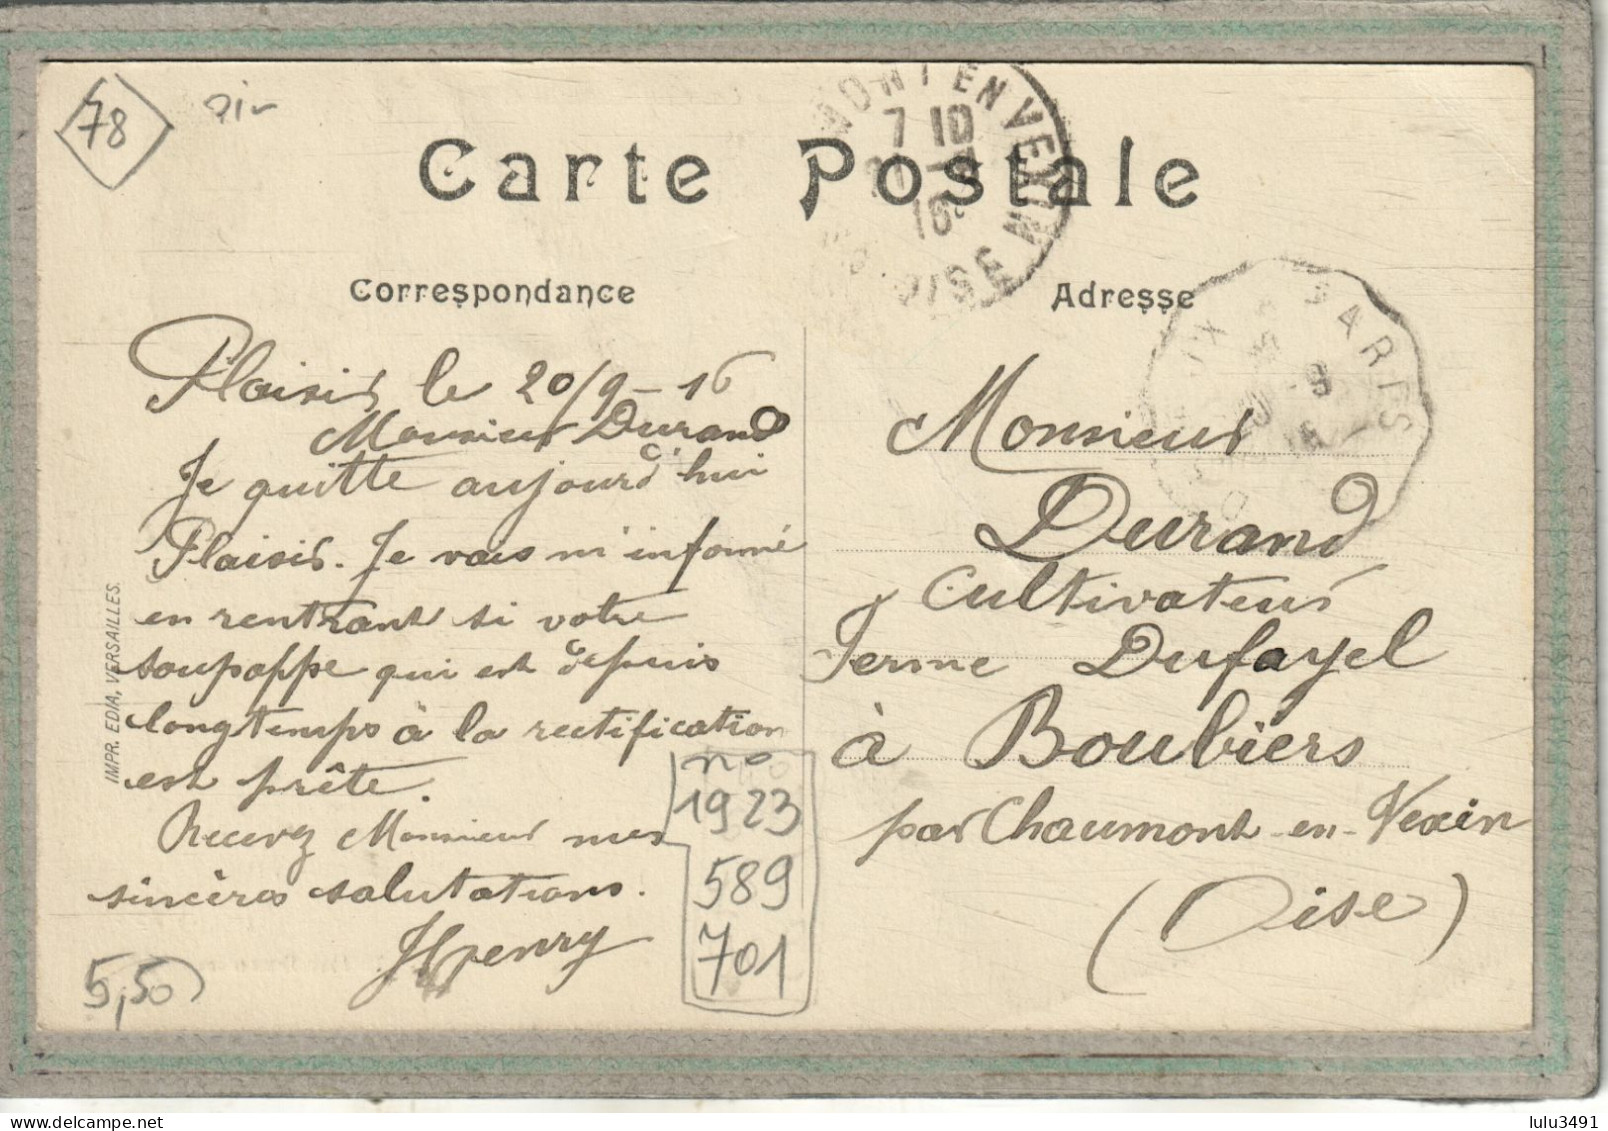 78
Carte Postale
MONT EN VEXIN
7 10
16
OISE
Correspondance
Adresse
À PARIS
Plaisir le 20/9-16
Monsieur Durand
Je quitte aujourd'hui
Plaisir. Je vais m'informé
en rentrant si votre
soupappe qui est depuis
longtemps à la rectification
est prête.
Recevez Monsieur mes
sincères salutations.
Henry
IMPR. EDIA, VERSAILLES.
Monsieur
Durand
Cultivateur
Ferme Dufayel
à Boubiers
par Chaumont-en-Vexin
(Oise)
no
1923
589
701
5,50
lulu3491